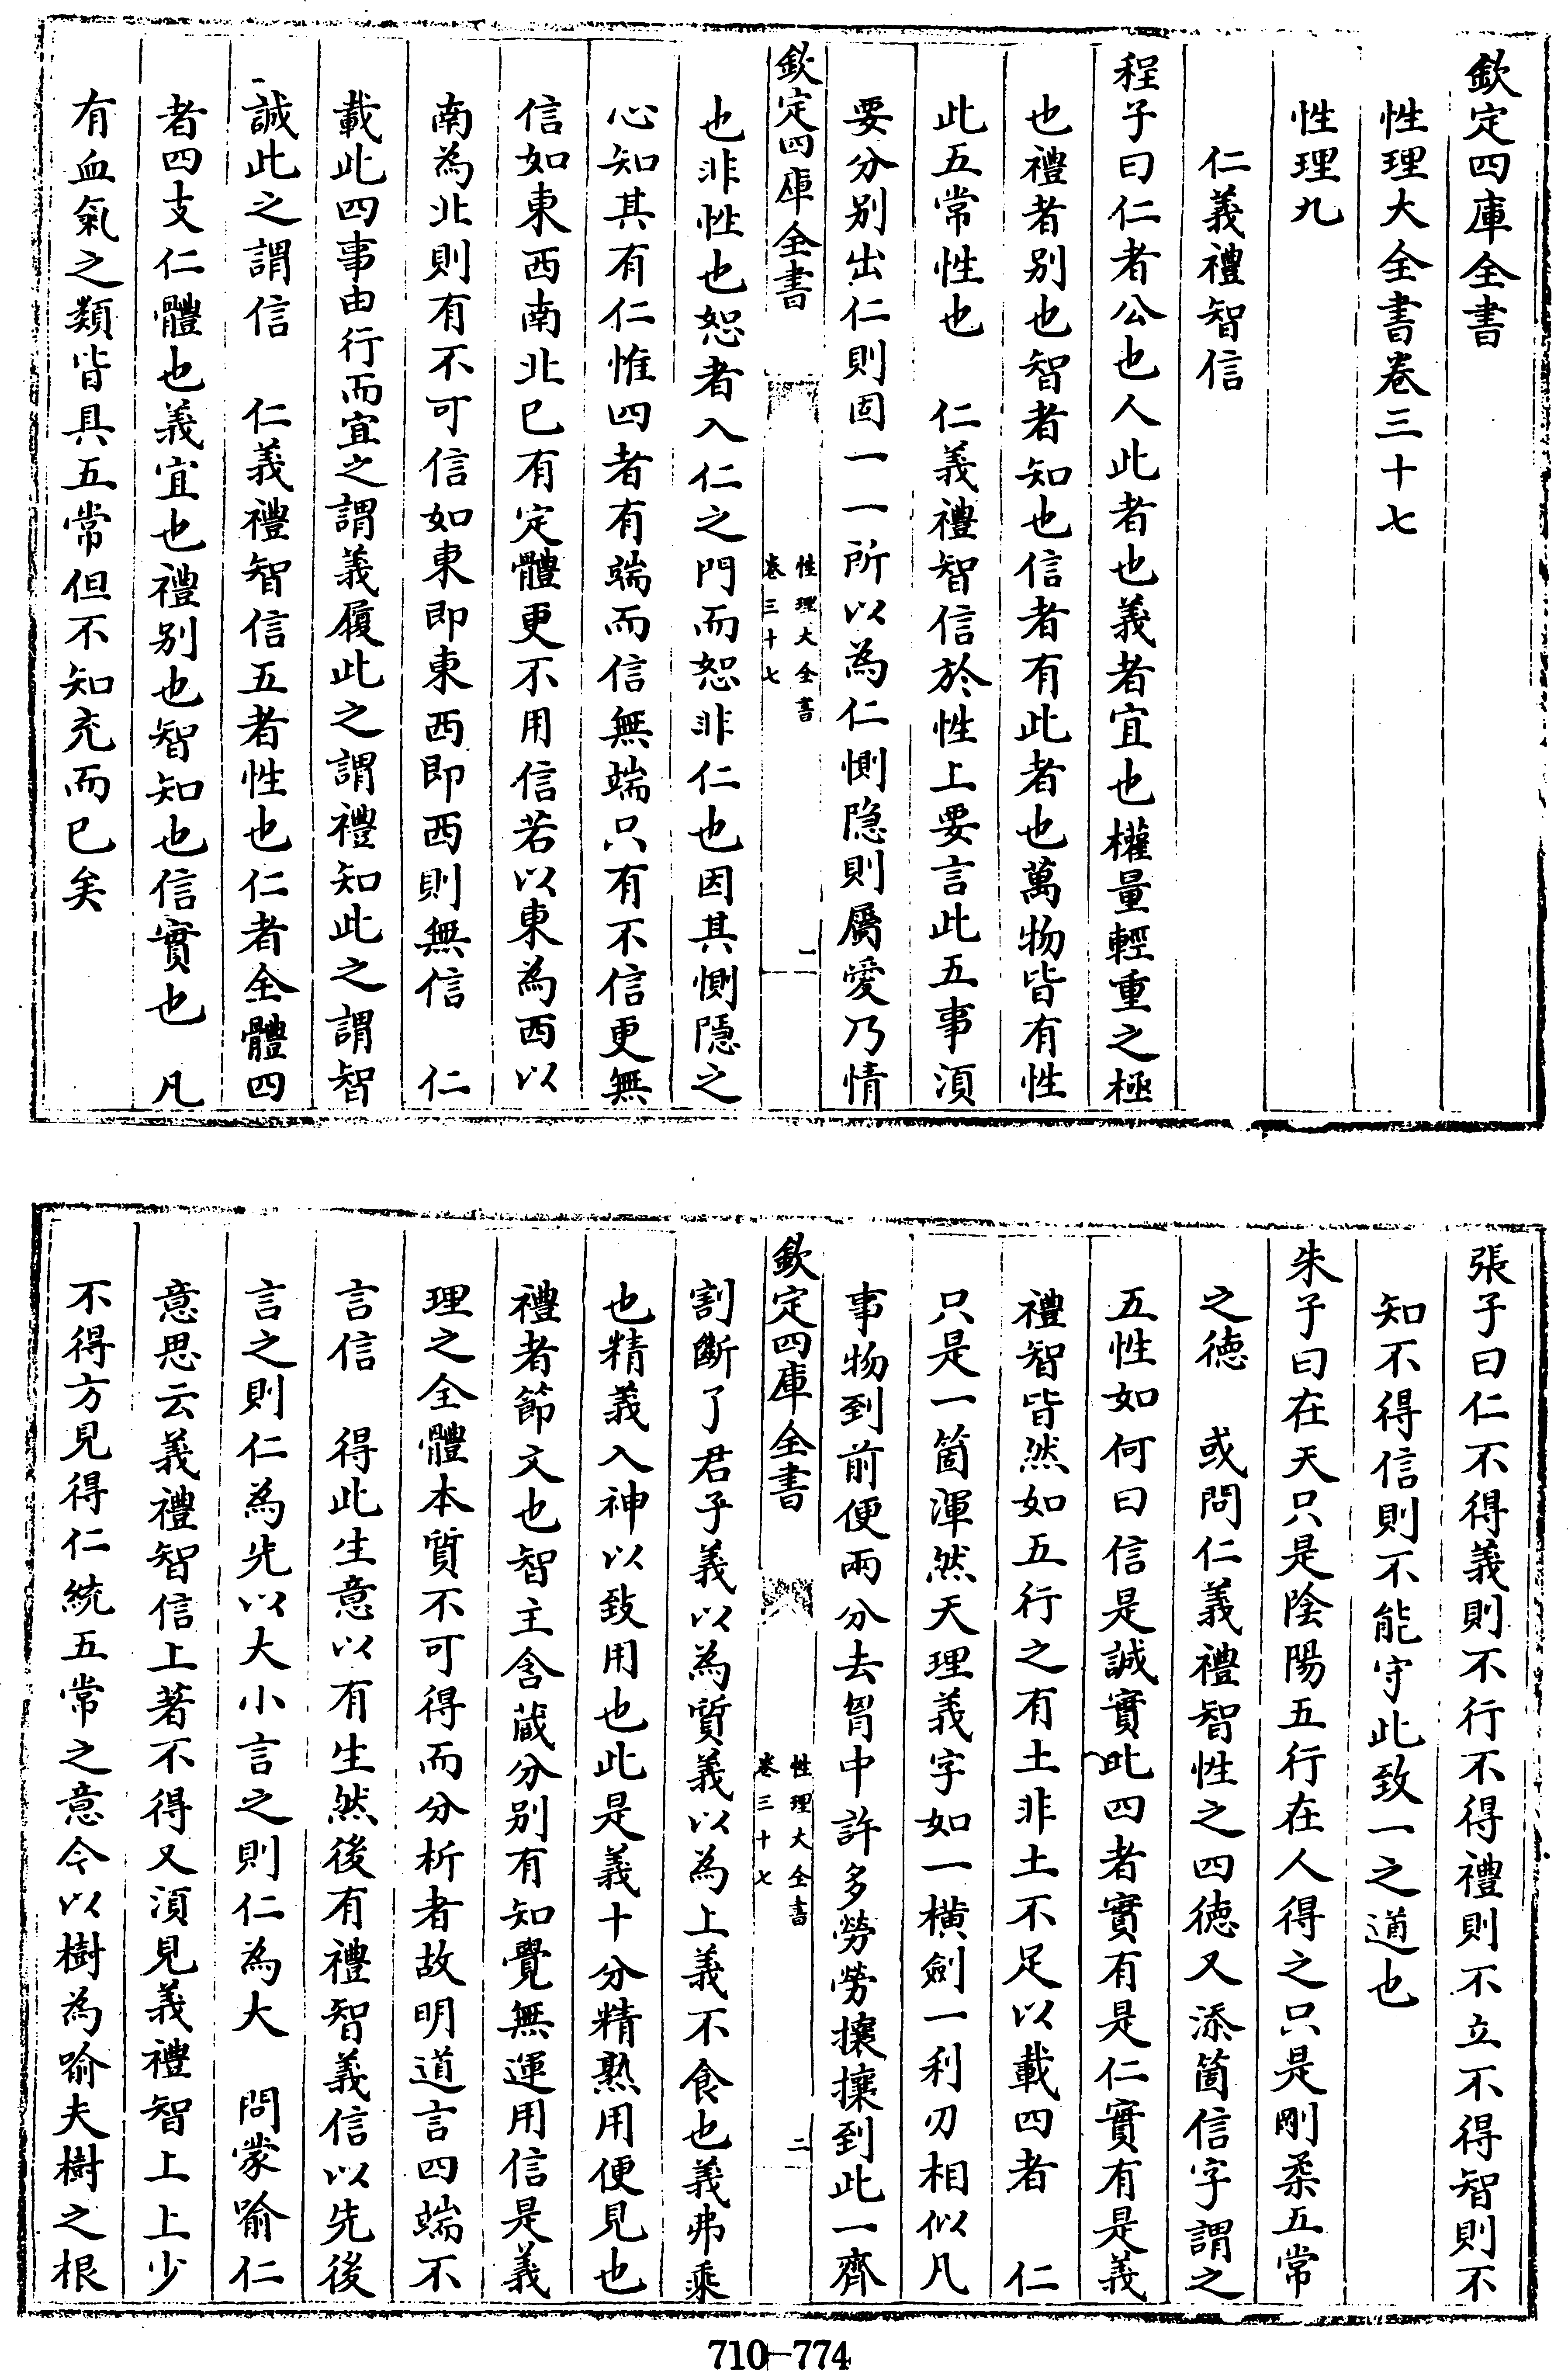 欽定四庫全書
性理大全書卷三十七
性理九
仁義禮智信
程子曰仁者公也人此者也義者宜也權量輕重之極
也禮者别也智者知也信者有此者也萬物皆有性
此五常性也　仁義禮智信於性上要言此五事湏
要分别出仁則固一一所以為仁惻隐則屬愛乃情
欽定四庫全書
性理大全書
卷三十七
一
也非性也恕者入仁之門而恕非仁也因其惻隱之
心知其有仁惟四者有端而信無端只有不信更無
信如東西南北已有定體更不用信若以東為西以
南為北則有不可信如東即東西即西則無信　仁
載此四事由行而宜之謂義履此之謂禮知此之謂智
誠此之謂信　仁義禮智信五者性也仁者全體四
者四支仁體也義宜也禮别也智知也信實也　凡
有血氣之類皆具五常但不知充而已矣
張子曰仁不得義則不行不得禮則不立不得智則不
知不得信則不能守此致一之道也
朱子曰在天只是隂陽五行在人得之只是剛柔五常
之徳　或問仁義禮智性之四徳又添箇信字謂之
五性如何曰信是誠實此四者實有是仁實有是義
禮智皆然如五行之有土非土不足以載四者　仁
只是一箇渾然天理義字如一横劍一利刃相似凡
事物到前便兩分去胷中許多勞勞攘攘到此一齊
欽定四庫全書
性理大全書
卷三十七
二
割斷了君子義以為質義以為上義不食也義弗乘
也精義入神以致用也此是義十分精熟用便見也
禮者節文也智主含蔵分别有知覺無運用信是義
理之全體本質不可得而分析者故明道言四端不
言信　得此生意以有生然後有禮智義信以先後
言之則仁為先以大小言之則仁為大　問蒙喻仁
意思云義禮智信上著不得又湏見義禮智上上少
不得方見得仁統五常之意今以樹為喻夫樹之根
710—774